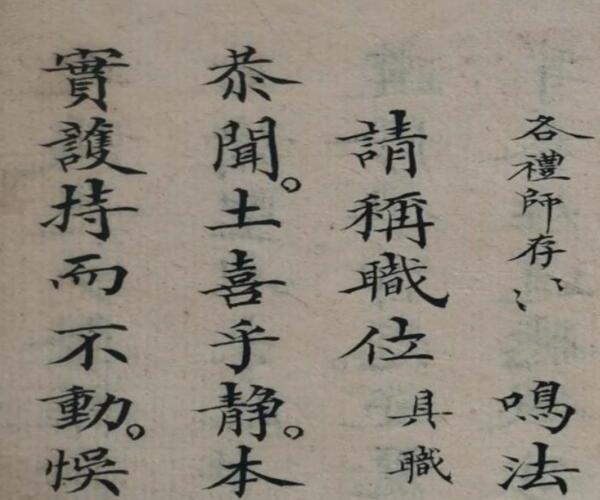 各禮師存〻鳴法
請稱職位具職
恭聞。土喜乎靜。本
實護持而不動。悞